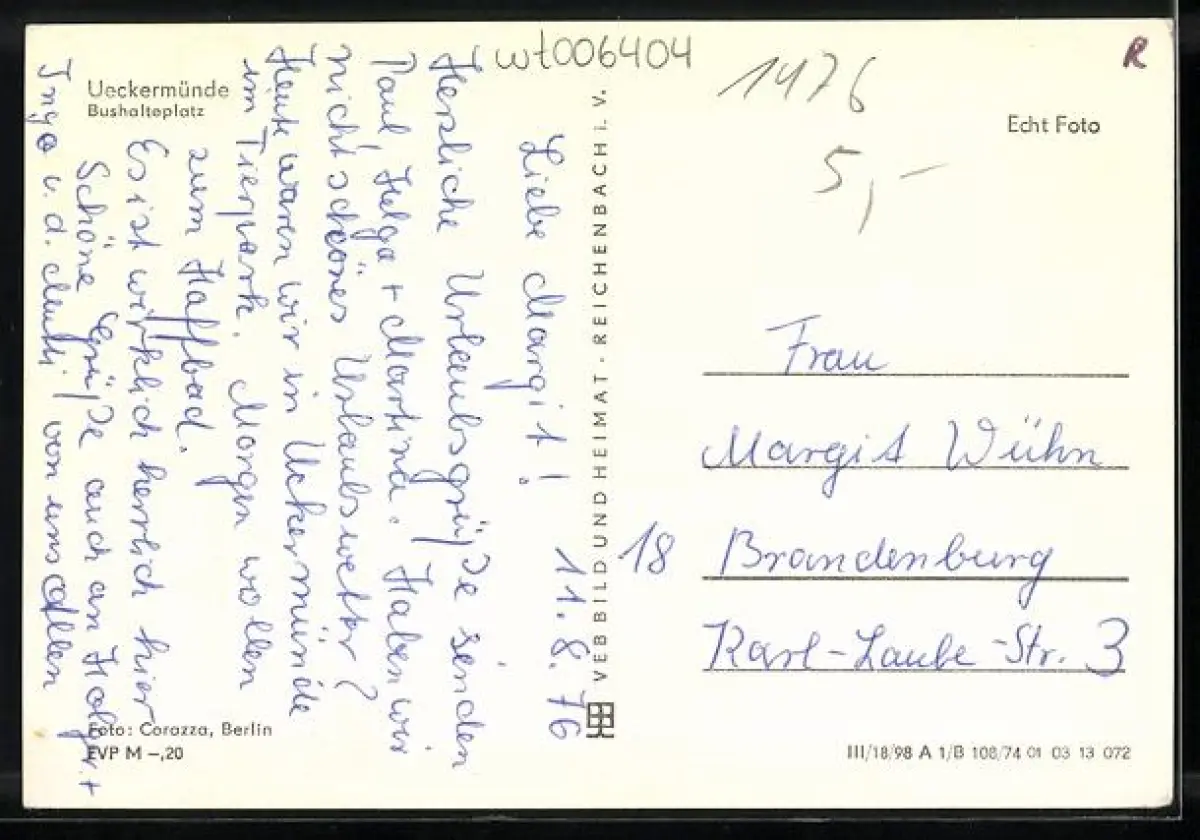 wt006404
1476
5,-
R
Ueckermünde
Bushalteplatz
Echt Foto
11.8.76
Liebe Margit!
Herzliche Urlaubsgrüße senden
Paul, Helga + Martina. Haben wir
nicht schönes Urlaubswetter?
Heute waren wir in Uckermünde
im Tierpark. Morgen wollen
zum Haffbad.
Es ist wirklich herrlich hier
Schöne Grüße auch an Holger +
Ingo u. d. Mutti von uns allen
VEB BILD UND HEIMAT · REICHENBACH i. V.
Frau
Margit Wühn
18 Brandenburg
Karl-Laube-Str. 3
Foto: Corazza, Berlin
EVP M -,20
III/18/98 A 1/B 108/74 01 03 13 072